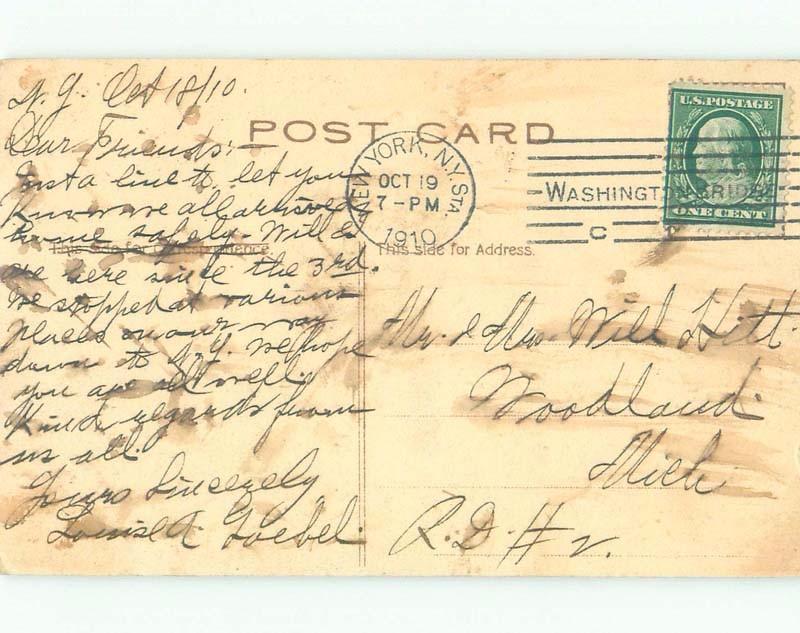 N.Y. Oct 18/10.
Dear Friends:-
Just a line to let you
know we all arrived
home safely. Will &
me here since the 3rd.
We stopped at various
places on our way
down to N.Y. We hope
you are all well.
Kind regards from
us all.
Yours Sincerely
Louise Goebel.
POST CARD
This side for Correspondence.
This side for Address.
NEW YORK, N.Y. STA.
OCT 19
7-PM
1910
WASHINGTON BRIDGE
C
U.S. POSTAGE
ONE CENT
Mr. & Mrs. Will Hitt.
Woodland
Mich
R.D. # 2.